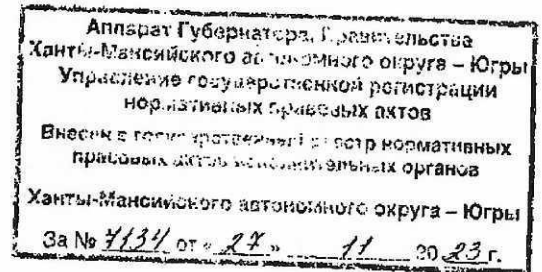 Аппарат Губернатора, Правительства
Ханты-Мансийского автономного округа – Югры
Управление государственной регистрации
нормативных правовых актов
Внесен в государственный реестр нормативных
правовых актов исполнительных органов
Ханты-Мансийского автономного округа – Югры
За № 7134 от « 27 » 11 20 23 г.